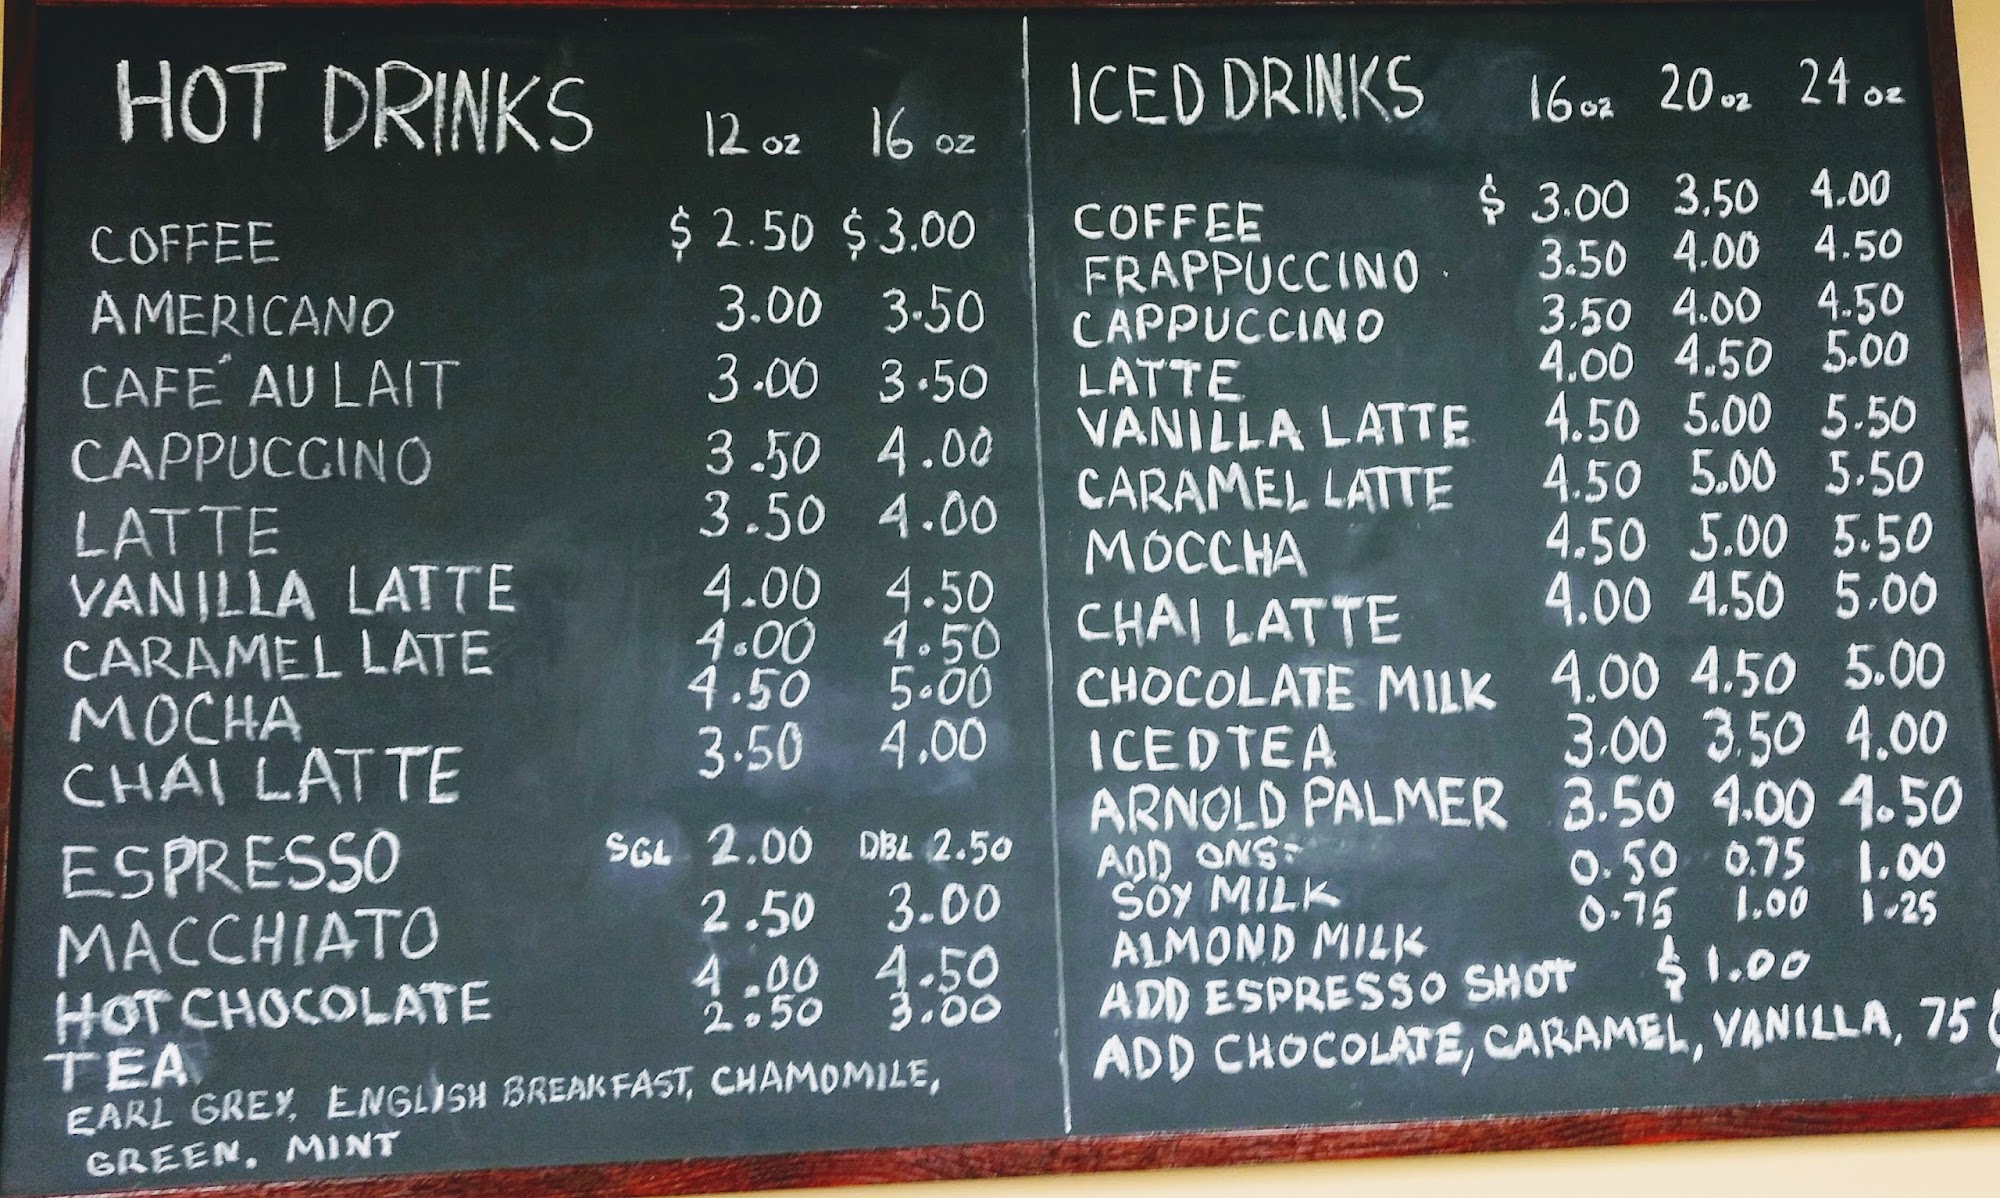 HOT DRINKS 12 oz 16 oz
COFFEE $ 2.50 $ 3.00
AMERICANO 3.00 3.50
CAFE' AU LAIT 3.00 3.50
CAPPUCCINO 3.50 4.00
LATTE 3.50 4.00
VANILLA LATTE 4.00 4.50
CARAMEL LATE 4.00 4.50
MOCHA 4.50 5.00
CHAI LATTE 3.50 4.00
ESPRESSO SGL 2.00 DBL 2.50
MACCHIATO 2.50 3.00
HOT CHOCOLATE 4.00 4.50
TEA 2.50 3.00
EARL GREY, ENGLISH BREAKFAST, CHAMOMILE,
GREEN. MINT
ICED DRINKS 16 oz 20 oz 24 oz
COFFEE $ 3.00 3.50 4.00
FRAPPUCCINO 3.50 4.00 4.50
CAPPUCCINO 3.50 4.00 4.50
LATTE 4.00 4.50 5.00
VANILLA LATTE 4.50 5.00 5.50
CARAMEL LATTE 4.50 5.00 5.50
MOCCHA 4.50 5.00 5.50
CHAI LATTE 4.00 4.50 5.00
CHOCOLATE MILK 4.00 4.50 5.00
ICED TEA 3.00 3.50 4.00
ARNOLD PALMER 3.50 4.00 4.50
ADD ONS:
SOY MILK 0.50 0.75 1.00
ALMOND MILK 0.75 1.00 1.25
ADD ESPRESSO SHOT $ 1.00
ADD CHOCOLATE, CARAMEL, VANILLA, 75 ¢